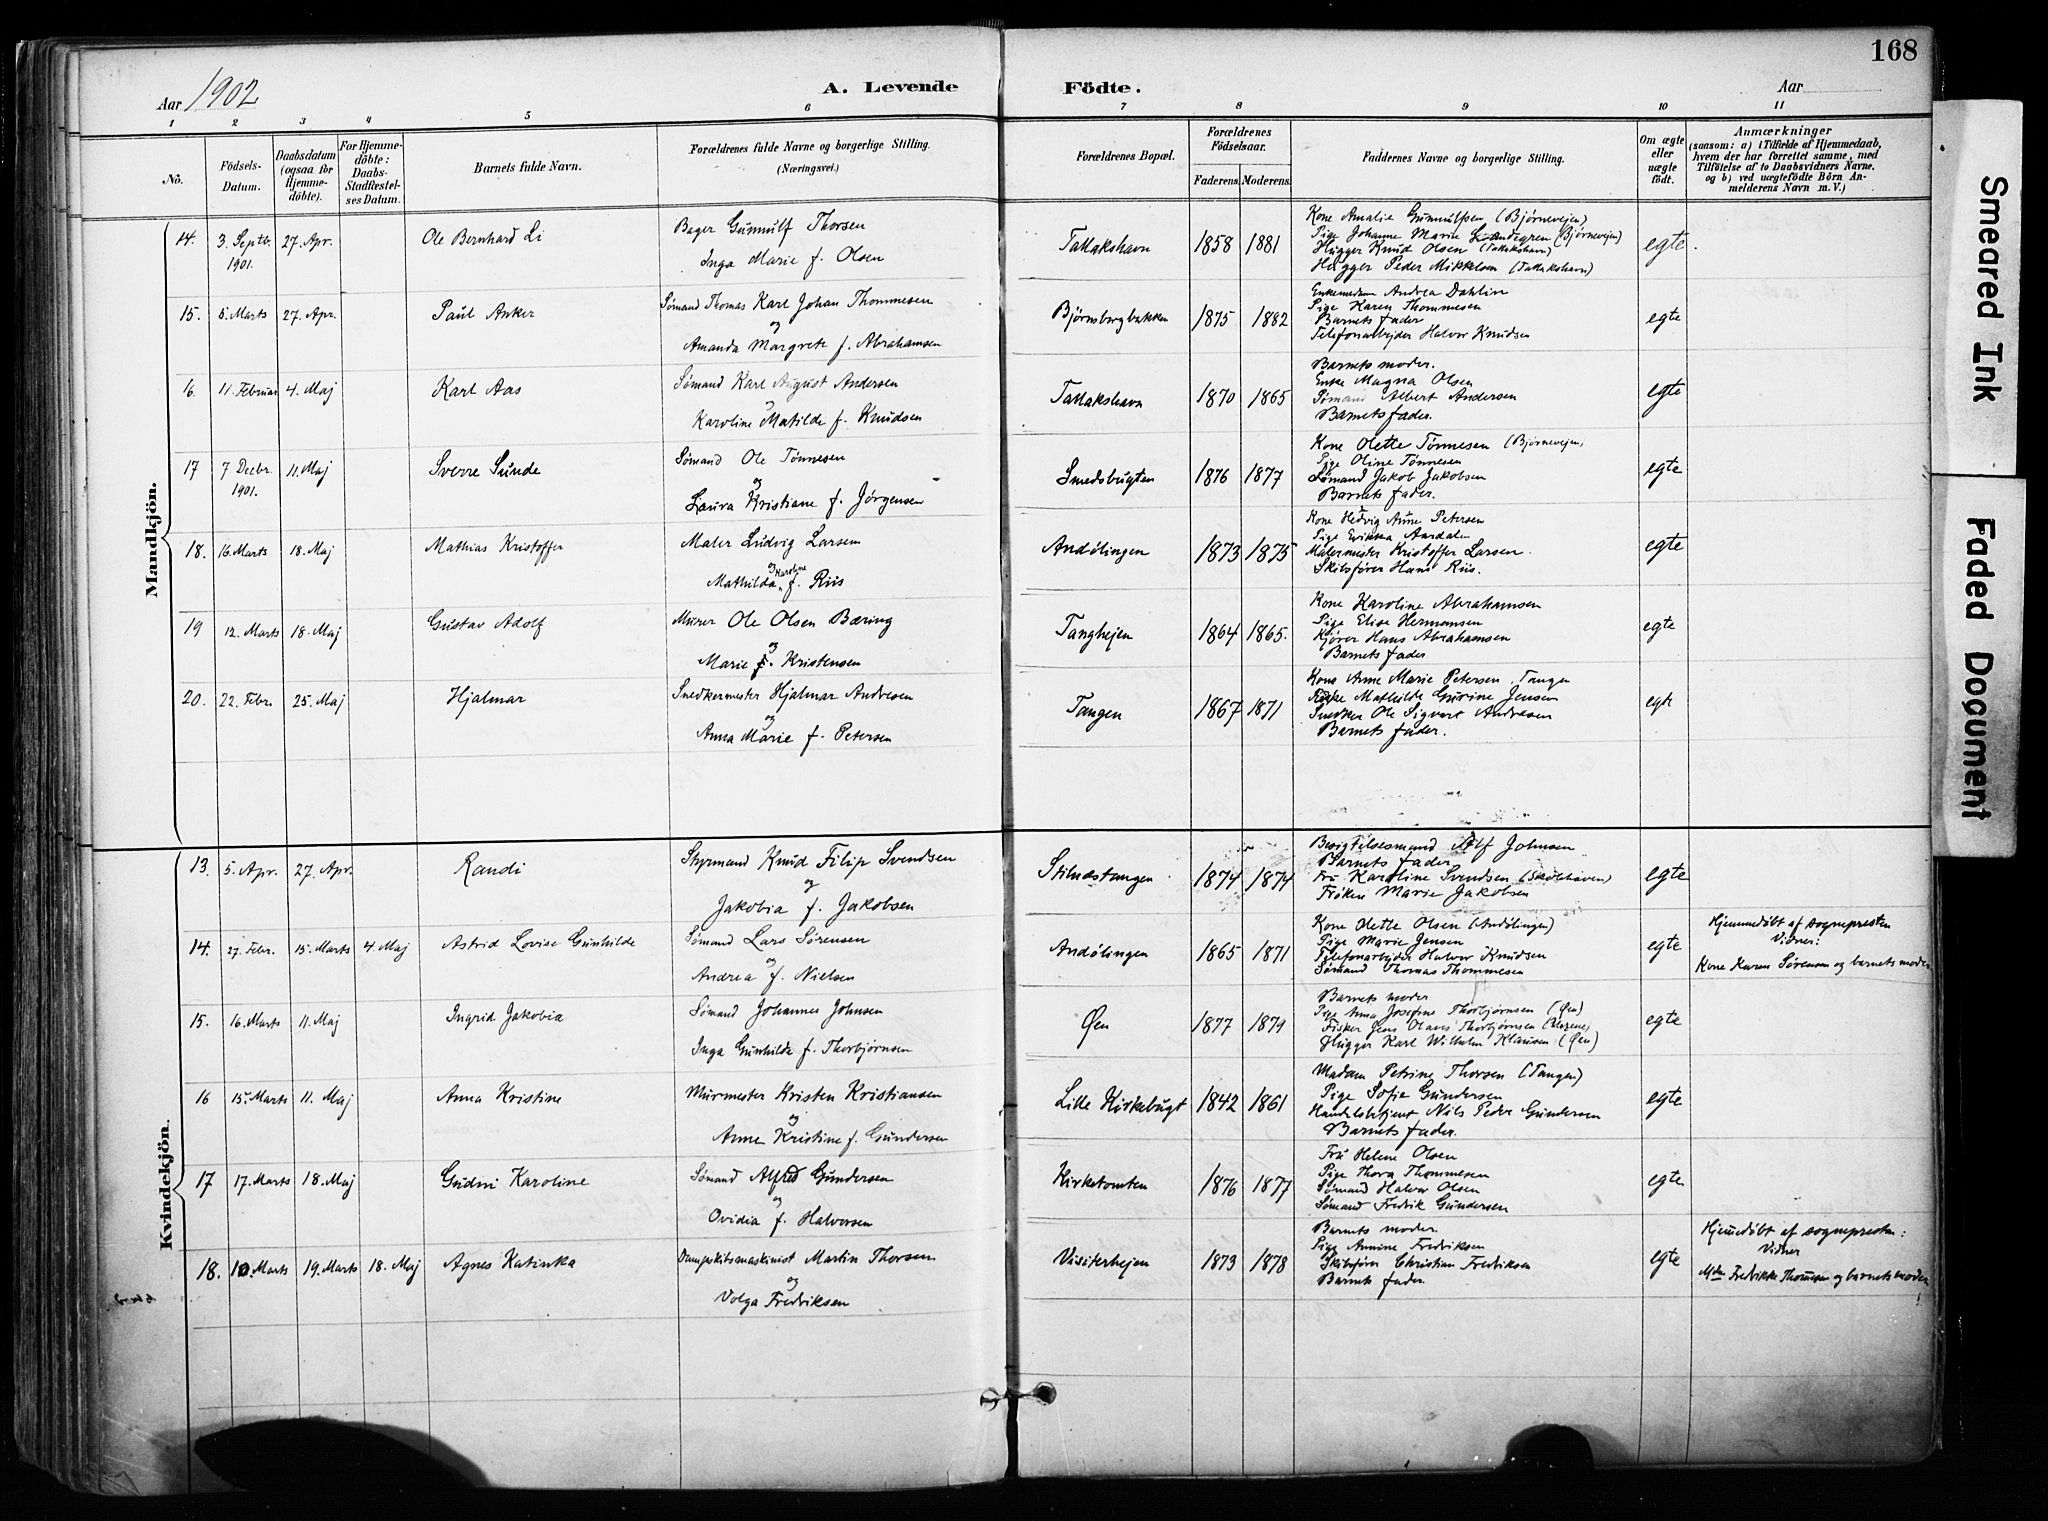 168
Aar 1902 A. Levende Födte. Aar
1 2 3 4 5 6 7 8 9 10 11
No. Födsels-Datum. Daabsdatum (ogsaa for Hjemme-döbte). For Hjemme-döbte: Daabs-Stadfestel-ses Datum. Barnets fulde Navn. Forældrenes fulde Navne og borgerlige Stilling. (Næringsvei.) Forældrenes Bopæl. Forældrenes Födselsaar. Faderens. Moderens. Faddernes Navne og borgerlige Stilling. Om ægte eller uægte födt. Anmærkninger (saasom: a) i Tilfælde af Hjemmedaab, hvem der har forrettet samme, med Tilföielse af to Daabsvidners Navne, og b) ved uægtefödte Börn An-melderens Navn m. V.)
Mandkjön.
14. 3. Septb. 1901. 27. Apr. Ole Bernhard Li
Bager Gunnulf Thorsen
Inga Marie f. Olsen
Tallakshavn 1858 1881
Kone Amalie Gunnulfsen (Bjørnevejen)
Pige Johanne Marie (Bjørnevejen)
Hugger Knud Olsen (Tallakshavn)
Hugger Peder Mikkelsen (Tallakshavn)
egte.
15. 5. Marts 27. Apr. Paul Anker
Sømand Thomas Karl Johan Thommesen
og
Amanda Margrete f. Abrahamsen
Bjørnsbergbakken 1875 1882
Enkemadam Andrea Dahlin
Pige Karen Thommesen
Barnets fader
Telefonarbejder Halvor Knudsen
egte
16. 11. Februar 4. Maj Karl Aas
Sømand Karl August Andersen
og
Karoline Matilde f. Knudsen
Tallakshavn 1870 1865
Barnets moder.
Enke Magna Olsen
Sømand Albert Andersen
Barnets fader.
egte
17 7 Decbr. 1901. 11. Maj Sverre Sunde
Sømand Ole Tønnesen
og
Laura Kristiane f. Jørgensen
Smedsbugten 1876 1877
Kone Olette Tønnesen (Bjørnevejen)
Pige Oline Tønnesen
Sømand Jakob Jakobsen
Barnets fader.
egte
18. 16. Marts 18. Maj Mathias Kristoffer
Maler Ludvig Larsen
og Karoline
Mathilda f. Riis
Andølingen 1873 1875
Kone Hedvig Anne Petersen
Pige Erikka Aardalen
Malermester Kristoffer Larsen.
Skibsfører Hans Riis.
egte
19 12. Marts 18. Maj Gustav Adolf
Murer Ole Olsen Bæring
og
Marie f. Kristensen
Tanghejen 1864 1865.
Kone Karoline Abrahamsen
Pige Elise Hermansen
Kjører Hans Abrahamsen
Barnets fader
egte
20. 22. Febr. 25. Maj Hjalmar
Snedkermester Hjalmar Andresen
og
Anna Marie f. Petersen
Tangen 1867 1871
Kone Anne Marie Petersen. Tangen
Mathilde Gurine Jensen
Snedker Ole Sigvart Andresen
Barnets fader.
egte
Kvindekjön.
13. 5. Apr. 27. Apr. Randi
Styrmand Knud Filip Svendsen
og
Jakobia f. Jakobsen
Stilnæstangen 1874 1874
Besigtelsesmand Alf Johnsen
Barnets fader
Fru Karoline Svendsen
Frøken Marie Jakobsen
egte
14. 27. Febr. 15. Marts 4. Maj Astrid Lovise Gunhilde
Sømand Lars Sørensen
og
Andrea f. Nielsen
Andølingen 1865 1871
Kone Olette Olsen (Andølingen)
Pige Marie Jensen
Telefonarbejder Halvor Knudsen
Sømand Thomas Thommesen
egte
Hjemmedøbt af sognepresten
Vidner:
Kone Karen Sørensen og barnets moder
15. 16. Marts 11. Maj Ingrid Jakobia
Sømand Johannes Johnsen
Inga Gunhilde f. Thorbjørnsen
Øen 1877 1879
Barnets moder
Pige Anna Josefine Thorbjørnsen (Øen)
Fisker Jens Olaves Thorbjørnsen
Hugger Karl Wilhelm Klausen (Øen)
egte
16 15. Marts 11. Maj Anna Kristine
Murmester Kristen Kristiansen
og
Anne Kristine f. Gundersen
Lille Kirkebugt 1842 1861
Madam Petrine Thorsen (Tangen)
Pige Sofie Gundersen
Handelsbetjent Nils Peder Gundersen
Barnets fader.
egte
17 17. Marts 18. Maj Gudni Karoline
Sømand Alfred Gundersen
og
Ovidia f. Halvorsen
Kirketomten 1876 1877
Fru Helene Olsen
Pige Thora Thommesen
Sømand Halvor Olsen
Sømand Fredrik Gundersen
egte
18. 10. Marts 19. Marts 18. Maj Agnes Katinka
Dampskibsmaskinist Martin Thorsen
og
Volga Fredriksen
Visiterhejen 1873 1878
Barnets moder.
Pige Annine Fredriksen
Skibsfører Christian Fredriksen
Barnets fader
egte
Hjemmedøbt af sognepresten:
Vidner
Mdm Fredrikke Thommesen og barnets moder
Smeared Ink
Faded Document